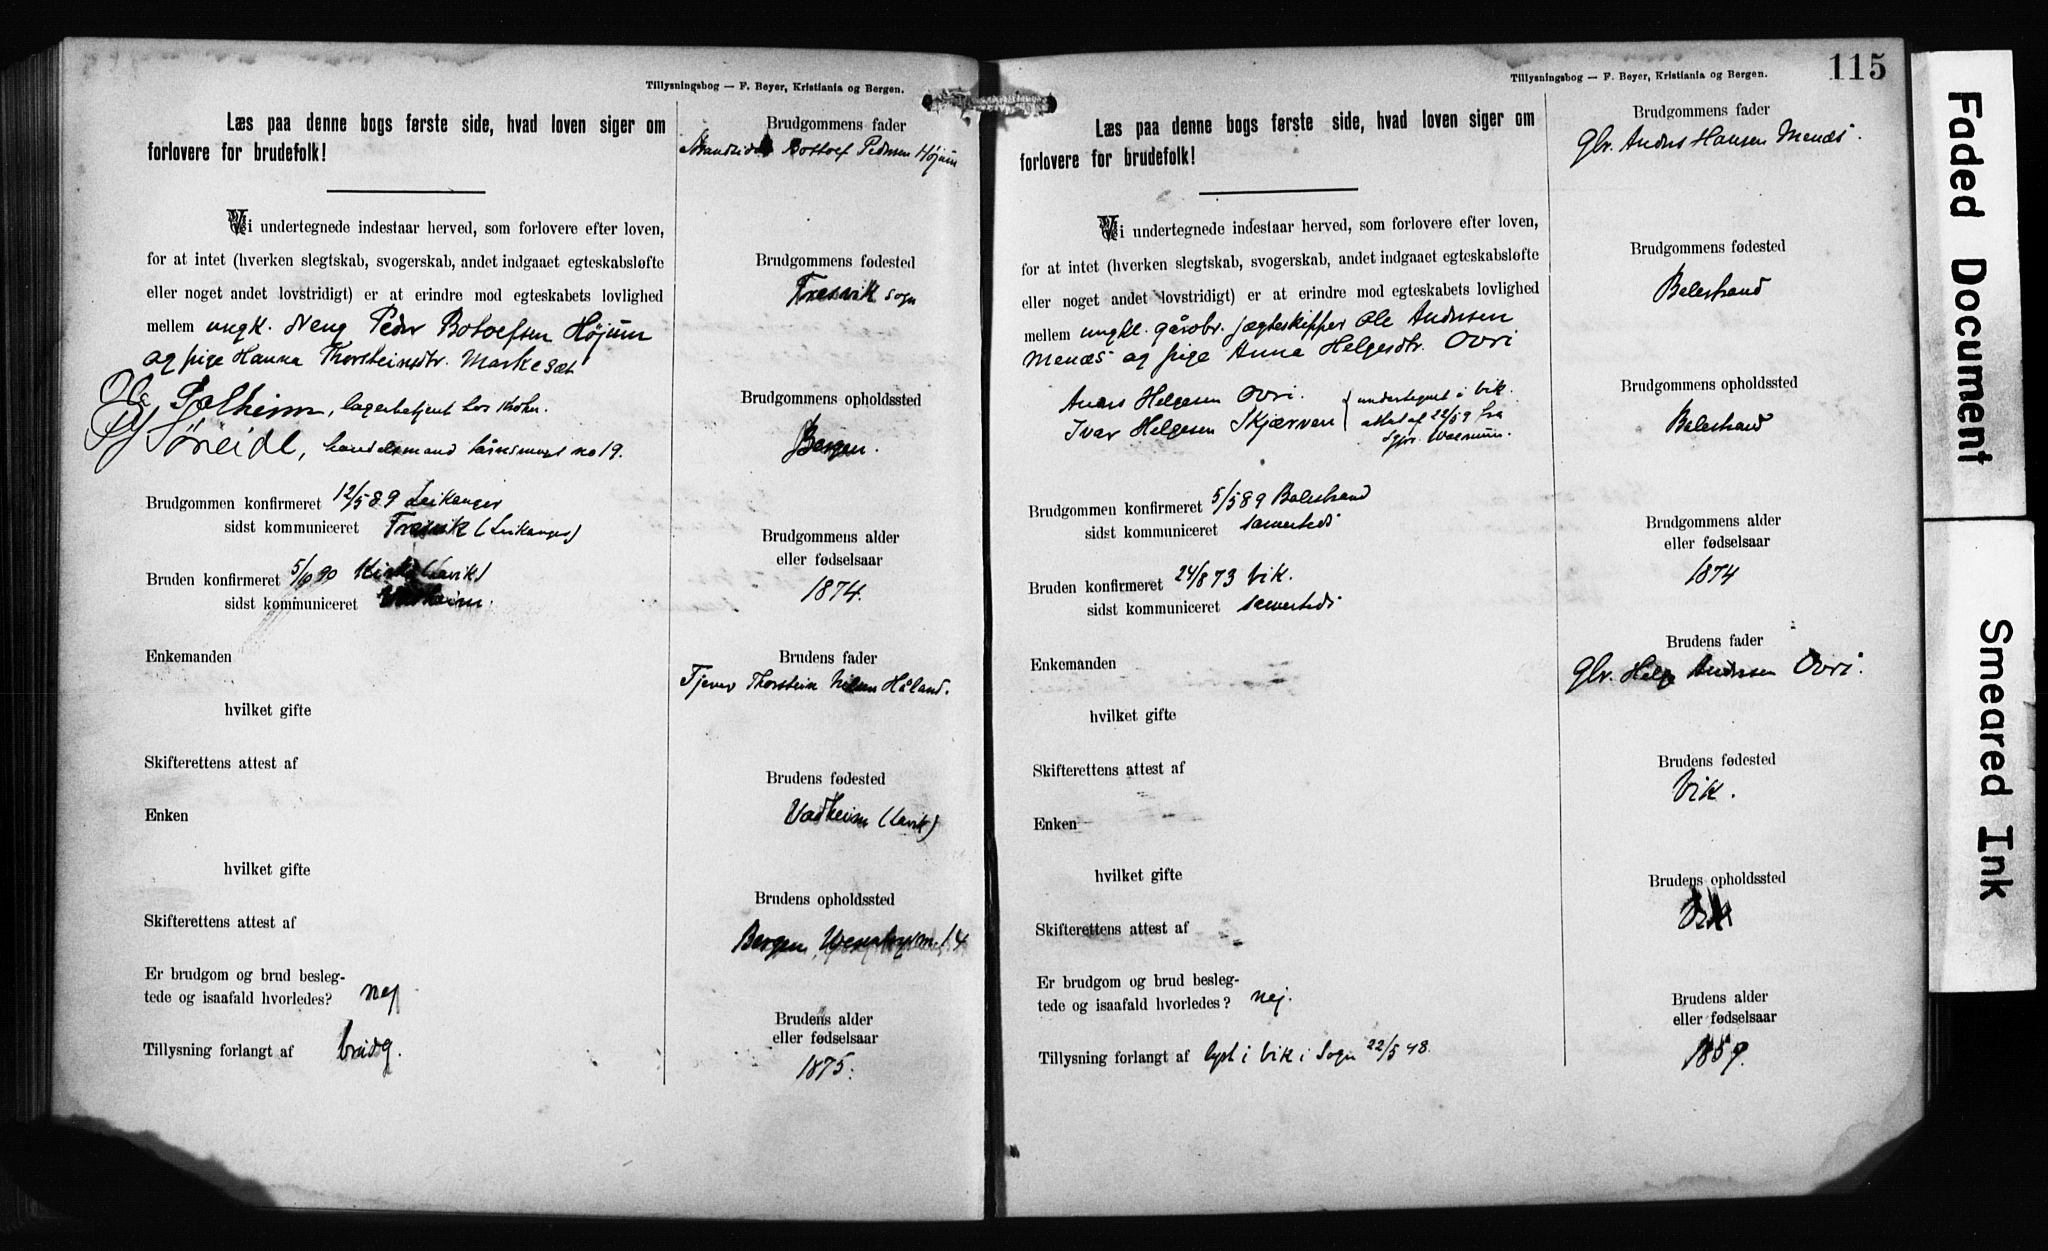 Tillysningsbog — F. Beyer, Kristiania og Bergen.
Læs paa denne bogs første side, hvad loven siger om
forlovere for brudefolk!
Vi undertegnede indestaar herved, som forlovere efter loven,
for at intet (hverken slegtskab, svogerskab, andet indgaaet egteskabsløfte
eller noget andet lovstridigt) er at erindre mod egteskabets lovlighed
mellem ungk. Peder Botolfsen Højum
og pige Hanna Thorsteinsdtr. Markesæt
Ole Solheim, lagerbetjent hos
Søreide, handelsmand no 19.
Brudgommen konfirmeret 12/5 89 Leikanger
sidst kommuniceret Fresvik (Leikanger)
Bruden konfirmeret 5/ 90 (Lavik)
sidst kommuniceret Vadheim.
Enkemanden
hvilket gifte
Skifterettens attest af
Enken
hvilket gifte
Skifterettens attest af
Er brudgom og brud besleg-
tede og isaafald hvorledes? nej
Tillysning forlangt af brudg.
Brudgommens fader
Strandsidder Botolf Pedersen Højum
Brudgommens fødested
Fresvik Sogn
Brudgommens opholdssted
Bergen.
Brudgommens alder
eller fødselsaar
1874.
Brudens fader
Thorstein Nilsen Håland.
Brudens fødested
Vadheim (Lavik)
Brudens opholdssted
Bergen, 14
Brudens alder
eller fødselsaar
1875.
Tillysningsbog — F. Beyer, Kristiania og Bergen.
115
Læs paa denne bogs første side, hvad loven siger om
forlovere for brudefolk!
Vi undertegnede indestaar herved, som forlovere efter loven,
for at intet (hverken slegtskab, svogerskab, andet indgaaet egteskabsløfte
eller noget andet lovstridigt) er at erindre mod egteskabets lovlighed
mellem ungkl. gårdbr. jægteskipper Ole Andersen
Menæs og pige Anna Helgesdtr. Ovri
Anders Helgesen Ovri.
Ivar Helgesen Skjærven
undertegnet i Vik.
attest af 22/5 9 fra
Brudgommen konfirmeret 5/5 89 Balestrand
sidst kommuniceret sammesteds
Bruden konfirmeret 24/8 73 Vik.
sidst kommuniceret sammesteds
Enkemanden
hvilket gifte
Skifterettens attest af
Enken
hvilket gifte
Skifterettens attest af
Er brudgom og brud besleg-
tede og isaafald hvorledes? nej.
Tillysning forlangt af lyst i Vik i Sogn 22/5 48.
Brudgommens fader
Gbr. Anders Hansen Menæs.
Brudgommens fødested
Balestrand
Brudgommens opholdssted
Balestrand
Brudgommens alder
eller fødselsaar
1874
Brudens fader
Gbr. Helge Andersen Ovri.
Brudens fødested
Vik.
Brudens opholdssted
Vik
Brudens alder
eller fødselsaar
1859.
Faded Document
Smeared Ink